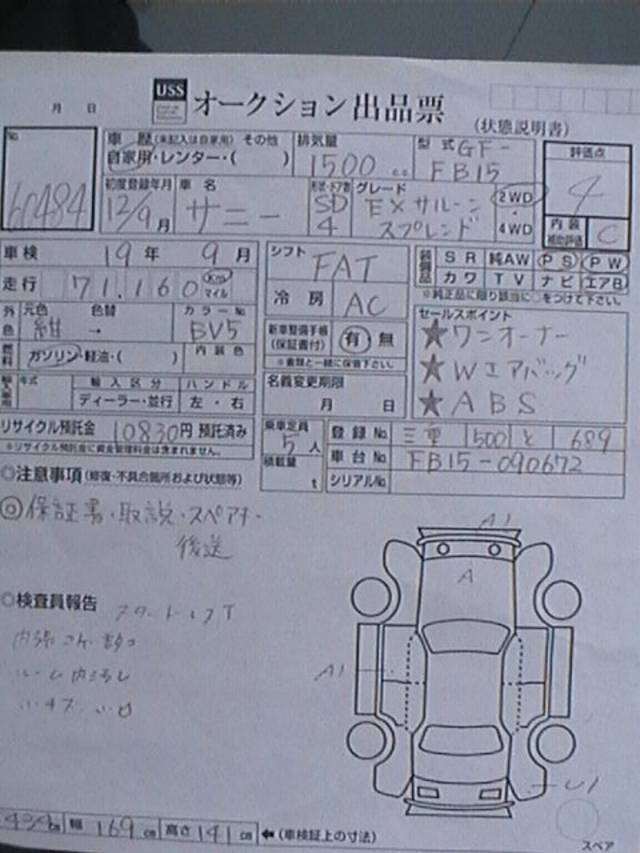 USS
オークション出品票
(状態説明書)
月 日
No.
60484
車歴 (未記入は自家用) その他
自家用・レンター・( )
排気量
1500 cc
型式 GF-
FB15
評価点
4
内装
補助評価 C
初度登録年月
12/9月
車名
サニー
形状・ドア数
SD
4
グレード
EXサルーン
スプレンド
2WD
・
4WD
車検 19年 9月
走行 71,160 km マイル
外色 元色 色替 カラーNo.
紺 → BV5
燃料 ガソリン・軽油・( ) 内装色
年式 輸入区分 ハンドル
ディーラー・並行 左・右
リサイクル預託金 10830円 預託済み
※リサイクル預託金に資金管理料金は含まれません。
シフト
FAT
冷房 AC
新車整備手帳
(保証書付) 有 無
※書類と一緒に保管下さい。
名義変更期限
月 日
装備品 SR 純AW PS PW
カワ TV ナビ エアB
※純正品に限り該当に○をつけて下さい。
セールスポイント
★ワンオーナー
★Wエアバッグ
★ABS
乗車定員
5人
積載量
t
登録No. 三重 500 と 689
車台No. FB15-090672
シリアルNo.
◎注意事項 (修復・不具合箇所および状態等)
◎保証書・取説・スペアキー
後送
◎検査員報告
A1
A
A1
U1
434cm 幅 169cm 高さ 141cm ←(車検証上の寸法)
スペア